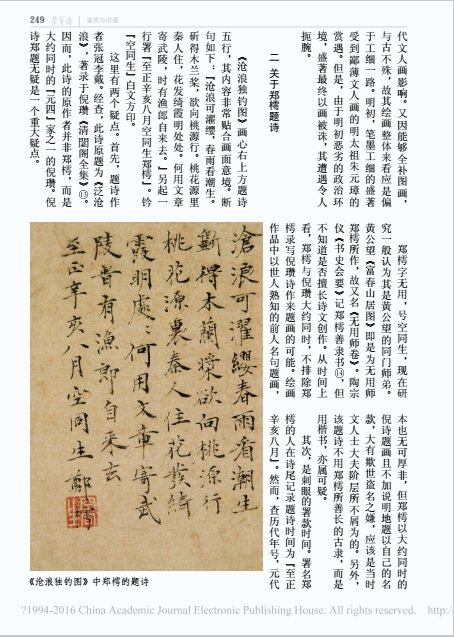 249
鉴赏与收藏
代文人画影响，又因能够全补图画，
与古不殊，故其绘画整体来看应是偏
于工细一路。明初，笔墨工细的盛著
受到鄙薄文人画的明太祖朱元璋的
赏遇。但是，由于明初恶劣的政治环
境，盛著最终以画被诛，其遭遇令人
扼腕。
二 关于郑樗题诗
《沧浪独钓图》画心右上方题诗
五行，其内容非常贴合画面意境。断
句如下：『沧浪可濯缨，春雨看潮生。
斫得木兰桨，欲向桃源行。桃花源里
秦人住，花发绮霞明处处。何用文章
寄武陵，时有渔郎自来去。』另起一
行署『至正辛亥八月空同生郑樗』。钤
『空同生』白文方印。
这里有两个疑点。首先，题诗作
者张冠李戴。经查，此诗原题为《泛沧
浪》，著录于倪瓒《清閟阁全集》⑬。
因而，此诗的原作者并非郑樗，而是
大约同时的『元四』家之一的倪瓒。倪
诗郑题无疑是一个重大疑点。
郑樗字无用，号空同生，现在研
究一般认为其是黄公望的同门师弟。
黄公望《富春山居图》即是为无用师
郑樗所作，故又名《无用师卷》。陶宗
仪《书史会要》记郑樗善隶书⑭，但
不知道是否擅长诗文创作。从时间上
看，郑樗与倪瓒大约同时，不排除郑
樗录写倪瓒诗作来题画的可能。绘画
作品中以世人熟知的前人名句题画，
本也无可厚非，但郑樗以大约同时的
倪诗题画且不加说明地题以自己的名
款，大有欺世盗名之嫌，应该是当时
文人士大夫阶层所不屑为的。另外，
该题诗不用郑樗所善长的古隶，而是
用楷书，亦属可疑。
其次，是刺眼的署款时间。署名郑
樗的人在诗尾记录题诗时间为『至正
辛亥八月』。然而，查历代年号，元代
滄浪可濯纓春雨看潮生
斵得木蘭槳欲向桃源行
桃花源裏秦人住花發綺
霞明處處何用文章寄武
陵嘗有漁郎自来去
至正辛亥八月空同生鄭
《沧浪独钓图》中郑樗的题诗
?1994-2016 China Academic Journal Electronic Publishing House. All rights reserved. http:/